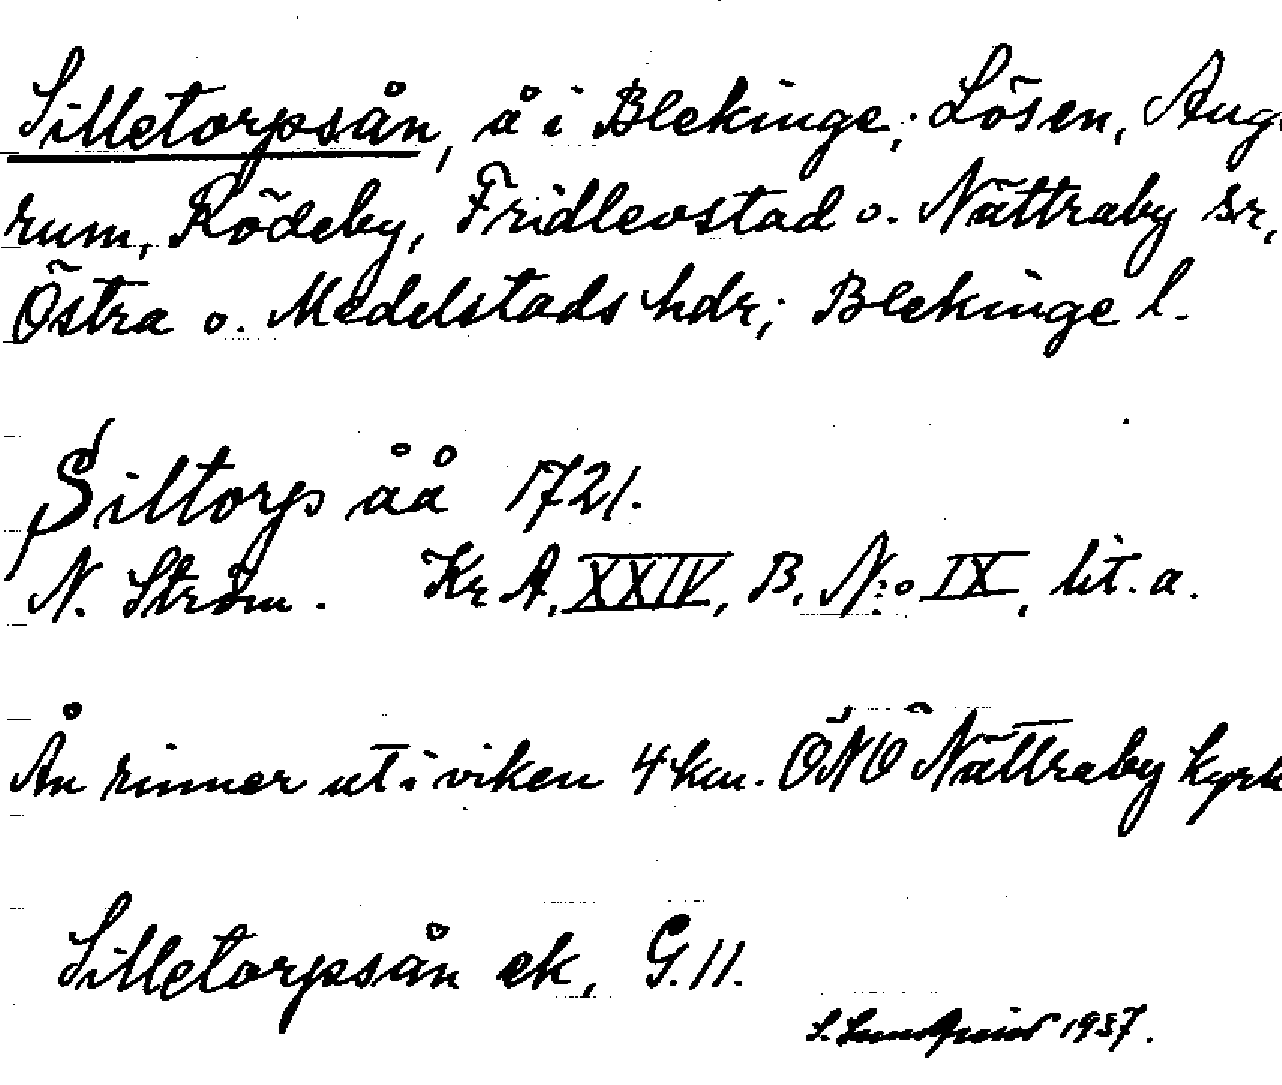 Silletorpsån, å i Blekinge; Lösen, Aug-
rum, Rödeby, Fridlevstad o. Nättraby sr,
Östra o. Medelstads hdr; Blekinge l.
Siltorps åå 1721.
N. Ström. Kr A, XXIV, B. N:o IX, lit. a.
Ån rinner ut i viken 4 km. ONO Nättraby kyrk
Silletorpsån ek, G.11.
S. Lundquist 1937.